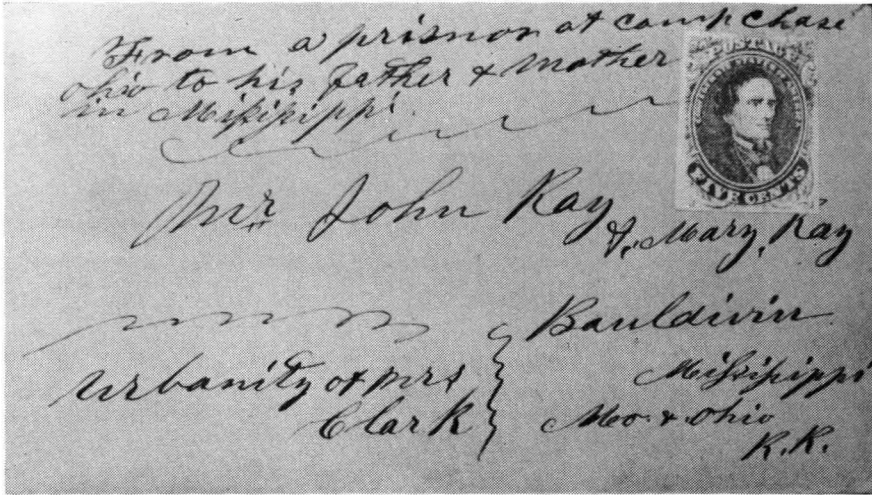 From a prisnor at camp chase
ohio to his father & mother
in Missisippi
POSTAGE
FIVE CENTS
Mr John Ray
& Mary, Ray
Bauldwin
Missisippi
Mo. & Ohio
R.R.
Urbanity of Mrs
Clark